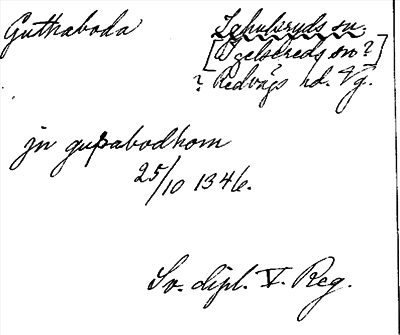 Guthaboda Ighulsryds sn.
[Ugelsereds sn?]
? Redvägs hd. Vg.
jn guþabodhom
25/10 1346.
Sv. dipl. V. Reg.